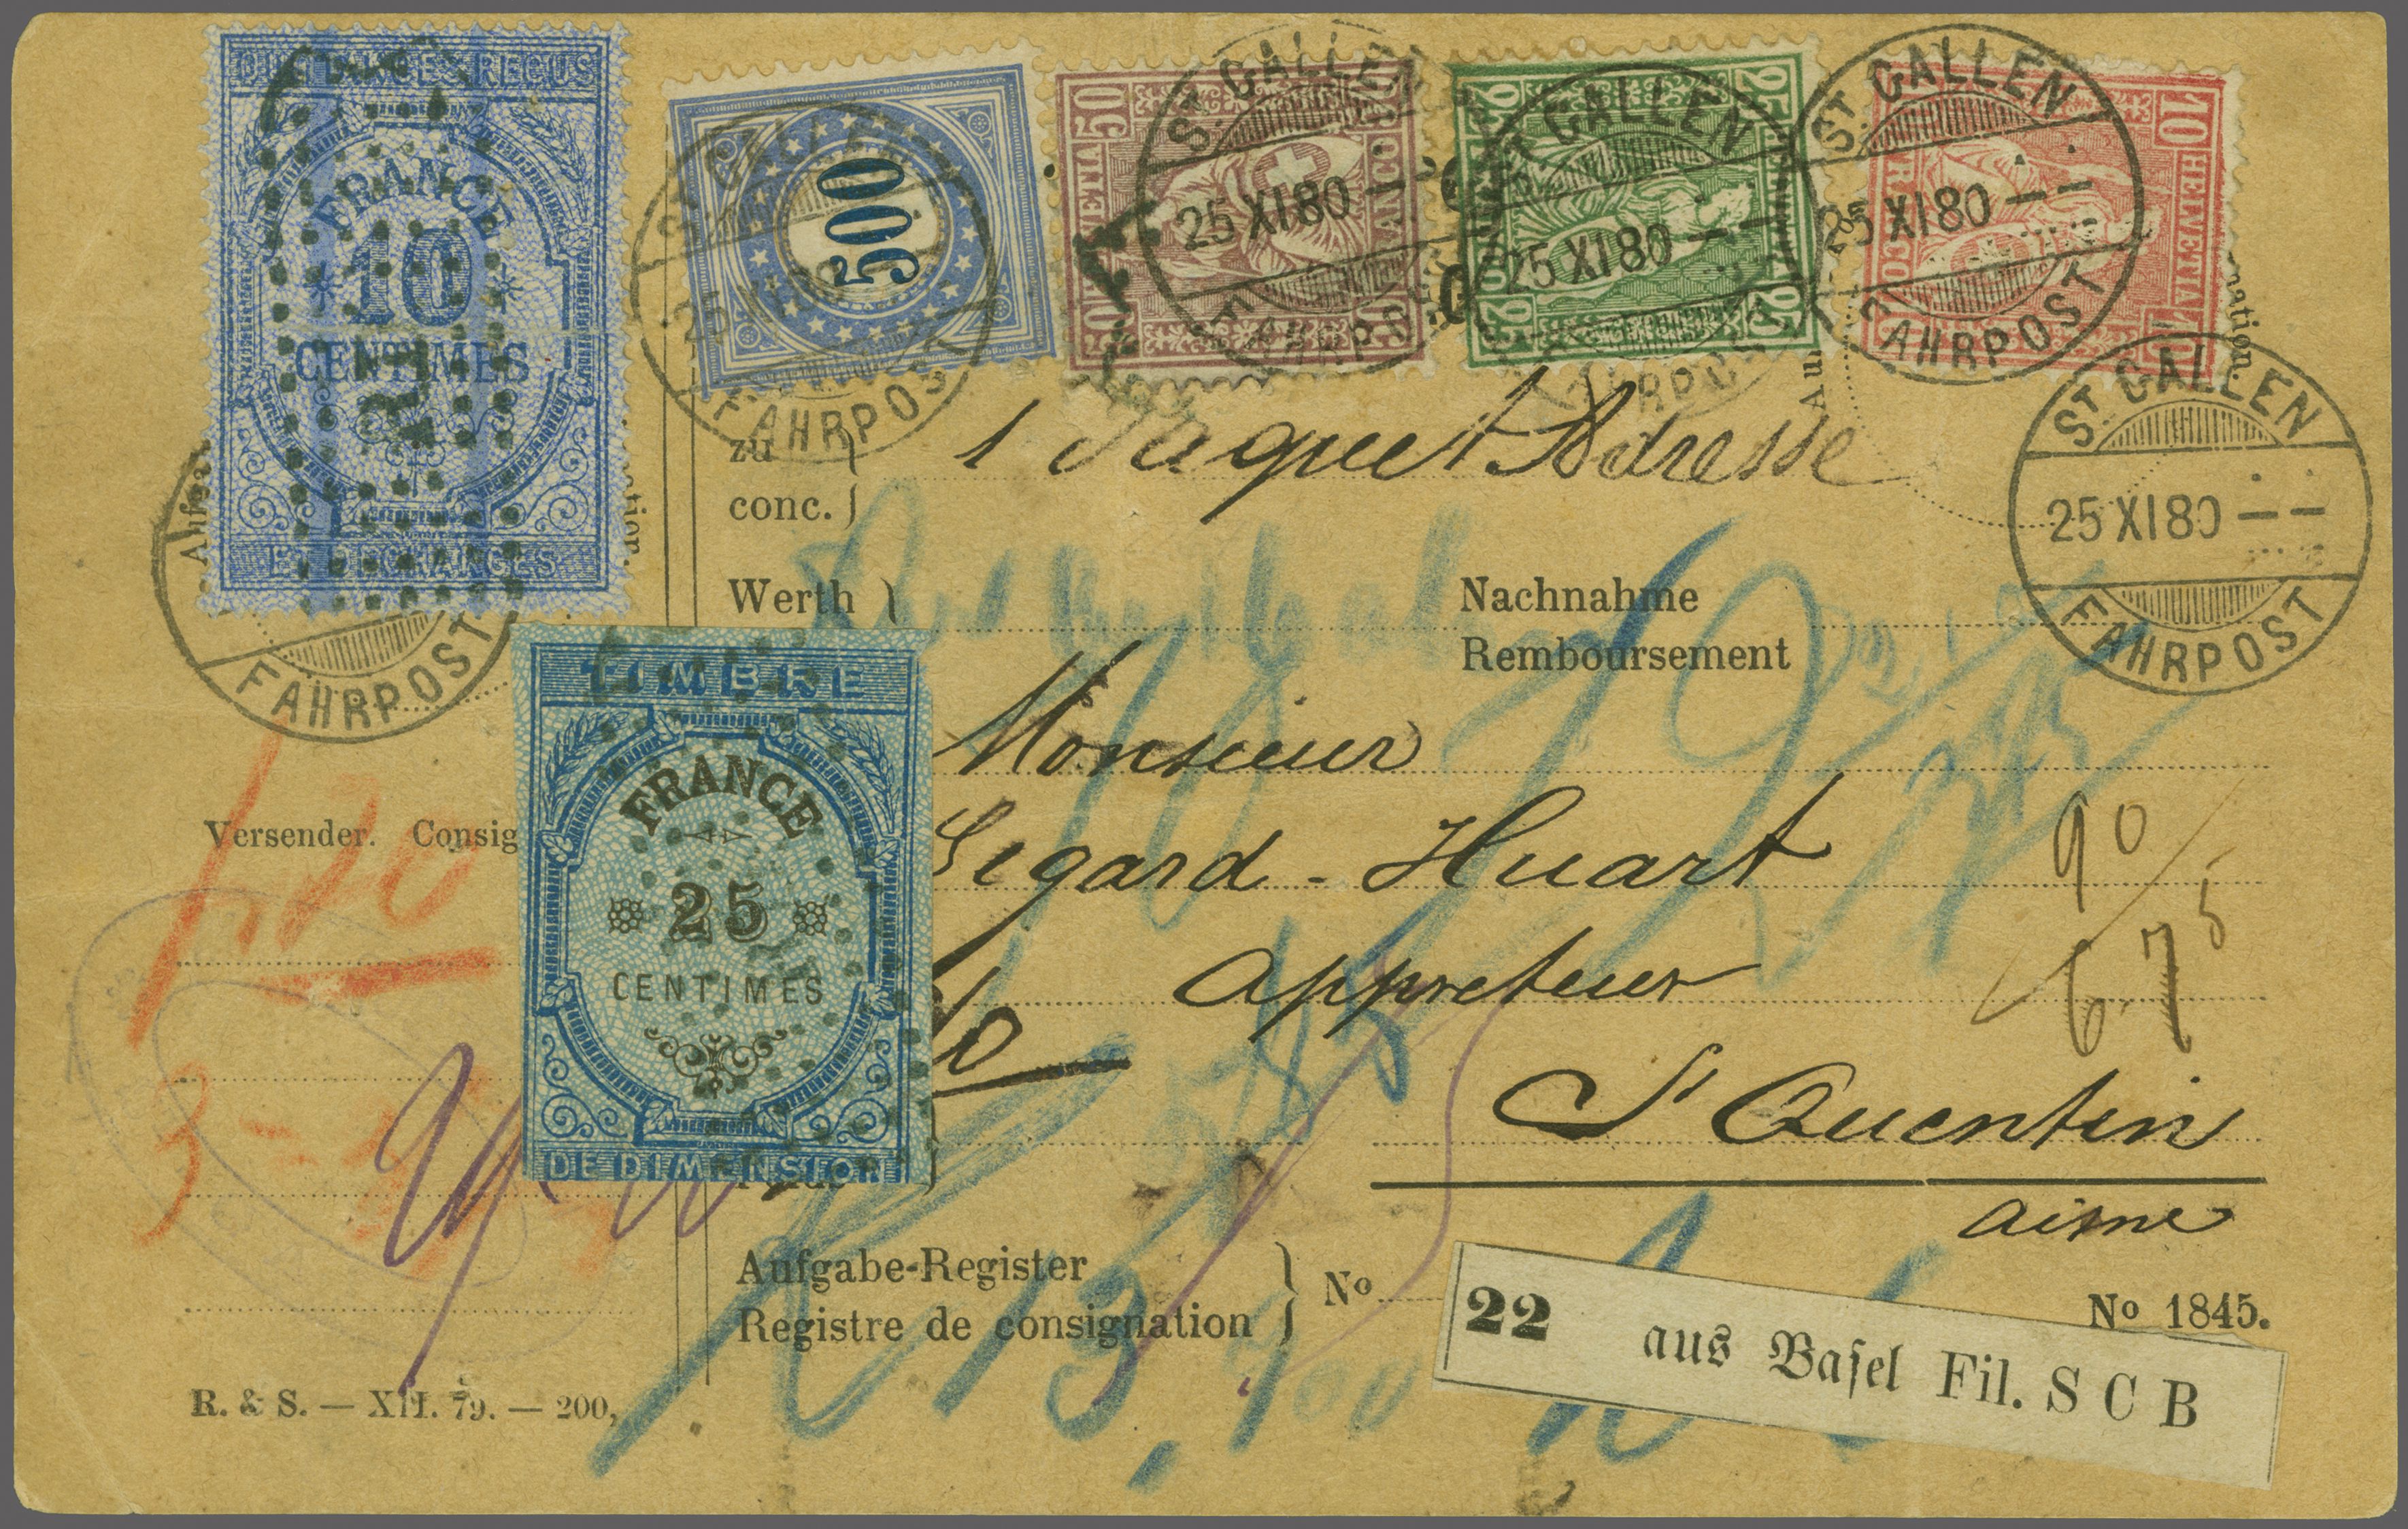 QUITTANCES REÇUS
FRANCE
10
CENTIMES
ET DÉCHARGES
500
50 HELVETIA 50
FRANCO
25 25
25 25
10 HELVETIA 10
FRANCO
ST. GALLEN
25 XI 80
FAHRPOST
ST. GALLEN
25 XI 80 – –
FAHRPOST
ST. GALLEN
25 XI 80 – –
FAHRPOST
ST. GALLEN
25 XI 80 – –
FAHRPOST
ST. GALLEN
25 XI 80 – –
FAHRPOST
FAHRPOST
zu
conc.
1 Paquet Adresse
Werth
Nachnahme
Remboursement
TIMBRE
FRANCE
25
CENTIMES
DE DIMENSION
Monsieur
Versender. Consig
1,20
Segard - Huart
90
6.75
appreteur
St Quentin
aisne
Aufgabe-Register
Registre de consignation
No
No 1845.
22 aus Basel Fil. S C B
R. & S. — XII. 79. — 200,